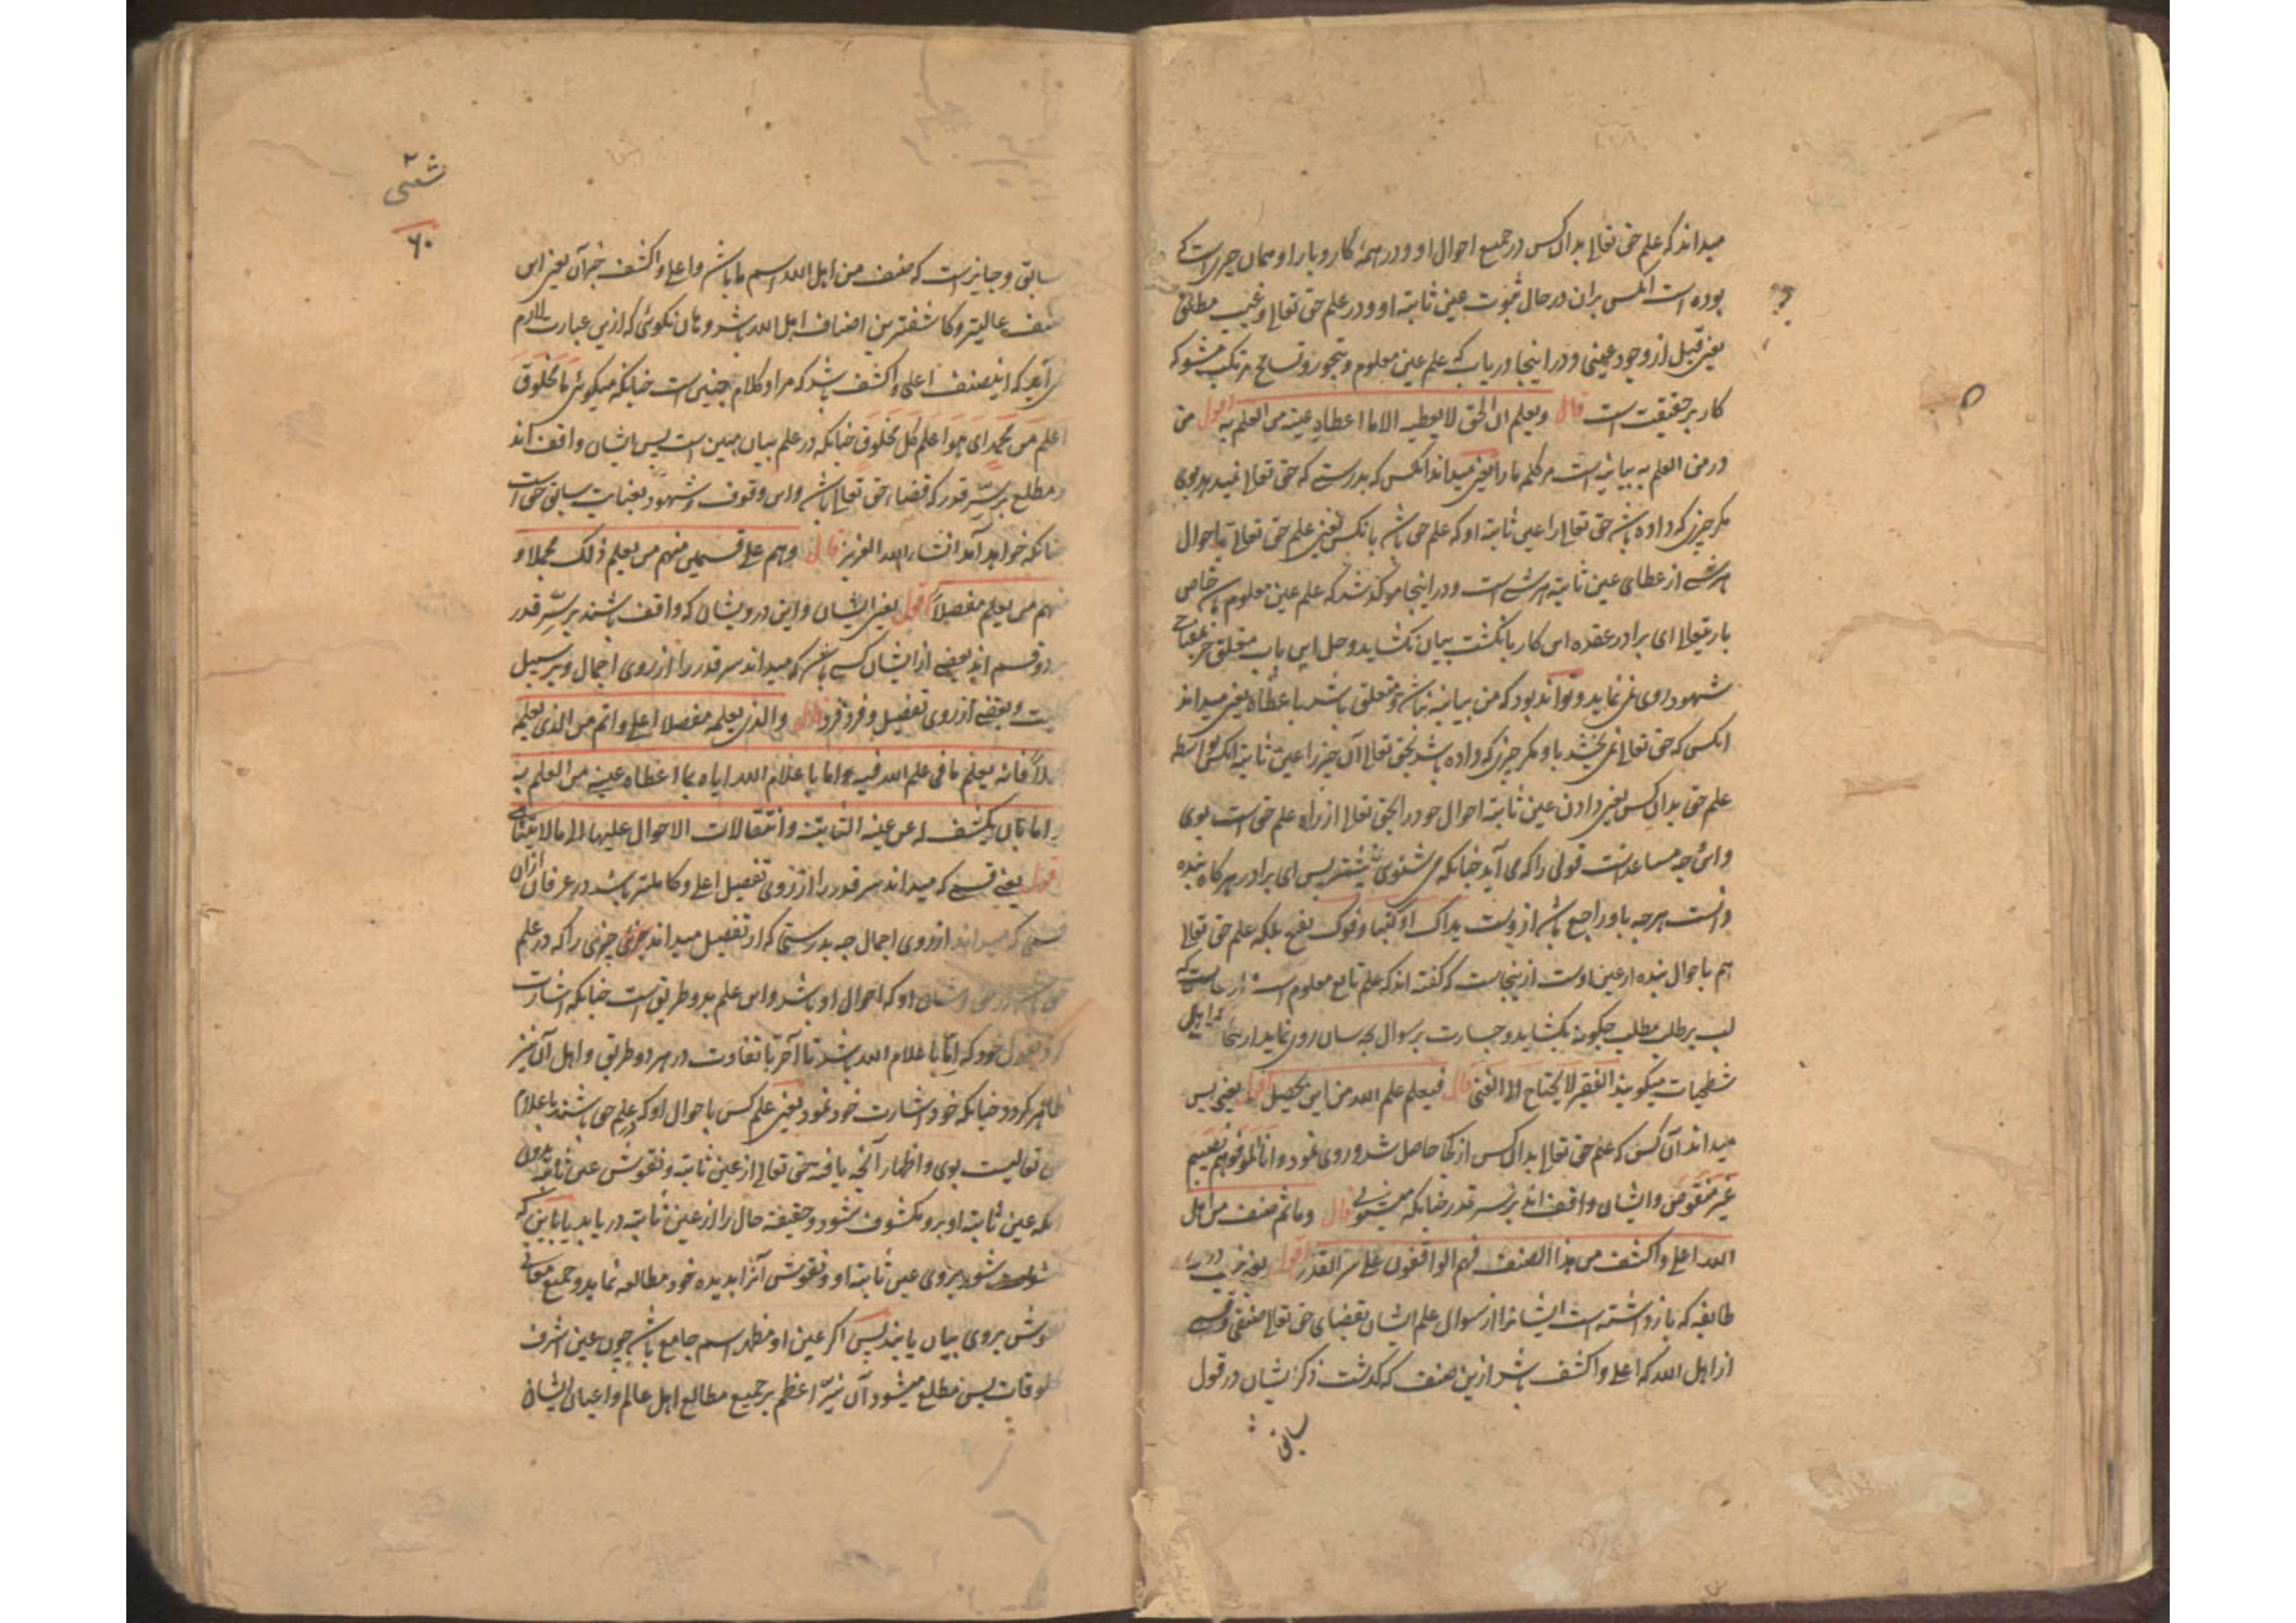 میداند که علم حق تعالی بدان کس در جمیع احوال او و در همهٔ کار و بار او همان چیزیست که
بوده است آنکس بران در حال ثبوت عین ثابته او و در علم حق تعالی و غیب مطلق
یعنی قبل از وجود عینی و در اینجا دریاب که علم عین معلوم و تجوز و تسامح مرتکب مشو که
کار بر حقیقت است قال ویعلم ان الحق لا یعطیه الا ما اعطاه عینه من العلم به اقول من
در من العلم به بیانیه است مر کلمه ما را یعنی میداند آنکس که بدرستی که حق تعالی نمیدهد بوی
مگر چیزی که داده باشد حق تعالی را عین ثابته او که علم حق باشد بآنکس یعنی علم حق تعالی باحوال
هر شی از عطای عین ثابته هر شی است و در اینجا موکد شد که علم عین معلوم خاص
باریتعالی ای برادر عقده این کار بانگشت بیان نگشاید و حل این باب مغلق جز بمفتاح
شهود روی نمی نماید و تواند بود که من بیانیه نباشد و متعلق باشد باعطاه یعنی میداند
آنکس که حق تعالی نمی بخشد باو مگر چیزی که داده باشد بحق تعالی آن چیز را عین ثابته آنکس بواسطه
علم حق بدان کس یعنی دادن عین ثابته احوال خود را بحق تعالی از راه علم حق است بوی
و این وجه مساعدست قولی را که می آید چنانکه می شنوی پیشتر پس ای برادر هر گاه بنده
دانست هرچه باو راجع باشد ازوست یداک اوکتا وفوک نفخ بلکه علم حق تعالی
هم باحوال بنده از عین اوست ازینجاست که گفته اند که علم تابع معلوم است
لب بر طلب مطلب چگونه بگشاید و جسارت بر سوال بچه سان روی نماید ازینجا اهل
شطحیات میگویند الفقیر لا یحتاج الی الغنی قال فیعلم علم الله من این یحصل اقول یعنی پس
میداند آن کس که علم حق تعالی بدان کس از کجا حاصل شد و روی نمود وانا لموفوهم نصیبهم
غیر منقوص و ایشان واقف اند بر سر قدر چنانکه میشنوی قال وما ثم صنف من اهل
الله اعلی واکشف من هذا الصنف فهم الواقفون علی سر القدر اقول یعنی
طایفه که باز داشته است ایشانرا از سوال علم ایشان بقضای حق تعالی صنفی و قسمی
از اهل الله که اعلی و اکشف باشد ازین صنف که گذشت ذکر ایشان در قول
سابق
شعی
۶۰
سابق و جایزست که صنف من اهل الله اسم ما باشد و اعلی و اکشف خبر آن یعنی این
صنف عالیتر و کاشفترین اصناف اهل الله باشد و هان نگوئی که ازین عبارت لازم
می آید که این صنف اعلی و اکشف باشد که مراد کلام چنین است چنانکه میگوئی ما مخلوق
اعلم من محمد ای هو اعلم کل مخلوق چنانکه در علم بیان مبین است پس ایشان واقف اند
و مطلع بر سر قدر که قضاء حق تعالی باشد و این وقوف و شهود بعنایت سابق حق است
چنانکه خواهد آمد انشاء الله العزیز قال وهم علی قسمین منهم من یعلم ذلک مجملا و
منهم من یعلم مفصلا اقول یعنی ایشان و این درویشان که واقف باشند بر سر قدر
دو قسم اند بعضی از ایشان کسی باشد که میداند سر قدر را از روی اجمال و بر سبیل
و بعضی از روی تفصیل و فرد فرد قال والذی یعلمه مفصلا اعلی واتم من الذی یعلمه
مجملا فانه یعلم ما فی علم الله فیه اما باعلام الله ایاه بما اعطاه عینه من العلم به
واما بان یکشف له عن عینه الثابته وانتقالات الاحوال علیها الی ما لا یتناهی
اقول یعنی قسمی که میداند سر قدر را از روی تفصیل اعلی و کاملتر باشد در عرفان ازان
قسمی که میداند از روی اجمال چه بدرستی که او تفصیل میداند چیزی را که در علم
حق باشد در حق و شان او که احوال او باشد و این علم بدو طریق است چنانکه اشارت
کرد بقول خود که اما باعلام الله باشد تا آخر با تفاوت در هر دو طریق و اهل آن نیز
ظاهر گردد چنانکه خود اشارت خود نمود یعنی علم کس باحوال او که در علم حق باشند باعلام
حق تعالیست بوی و اظهار آنچه یافته حق تعالی از عین ثابته و نقوش عین ثابته بدون
آنکه عین ثابته او برو مکشوف شود و حقیقت حال را از عین ثابته دریابد یا باین که
شود بروی عین ثابته او و نقوش آنرا بدیده خود مطالعه نماید و جمیع معانی
نقوش بروی بیان یابند پس اگر عین او مظهر اسم جامع باشد چون عین اشرف
مخلوقات پس مطلع میشود آن نیر اعظم بر جمیع مطالع اهل عالم و اعیان ایشان